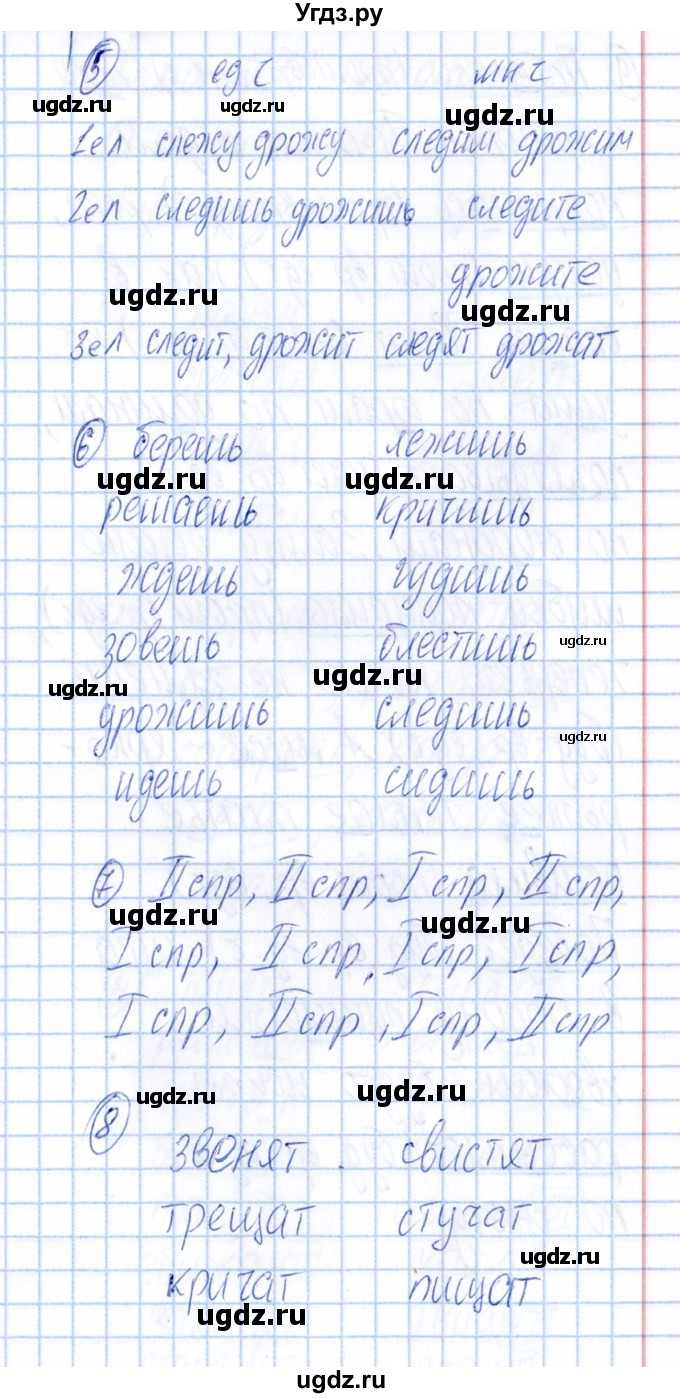 Угдз.ру
5 ед ч мн ч
ugdz.ru ugdz.ru ugdz.ru
1ел слежу дрожу следим дрожим
2ел следишь дрожишь следите
дрожите
ugdz.ru ugdz.ru
3ел следит, дрожит следят дрожат
6 берешь лежишь
ugdz.ru ugdz.ru
решаешь кричишь
ждешь гудишь
зовешь блестишь ugdz.ru
ugdz.ru ugdz.ru
дрожишь следишь ugdz.ru
идешь сидишь
7 II спр, II спр, I спр, II спр,
ugdz.ru ugdz.ru
I спр, II спр, I спр, I спр,
I спр, II спр, I спр, II спр
ugdz.ru ugdz.ru
8
звенят свистят
трещат стучат
ugdz.ru
кричат пищат
ugdz.ru
ugdz.ru